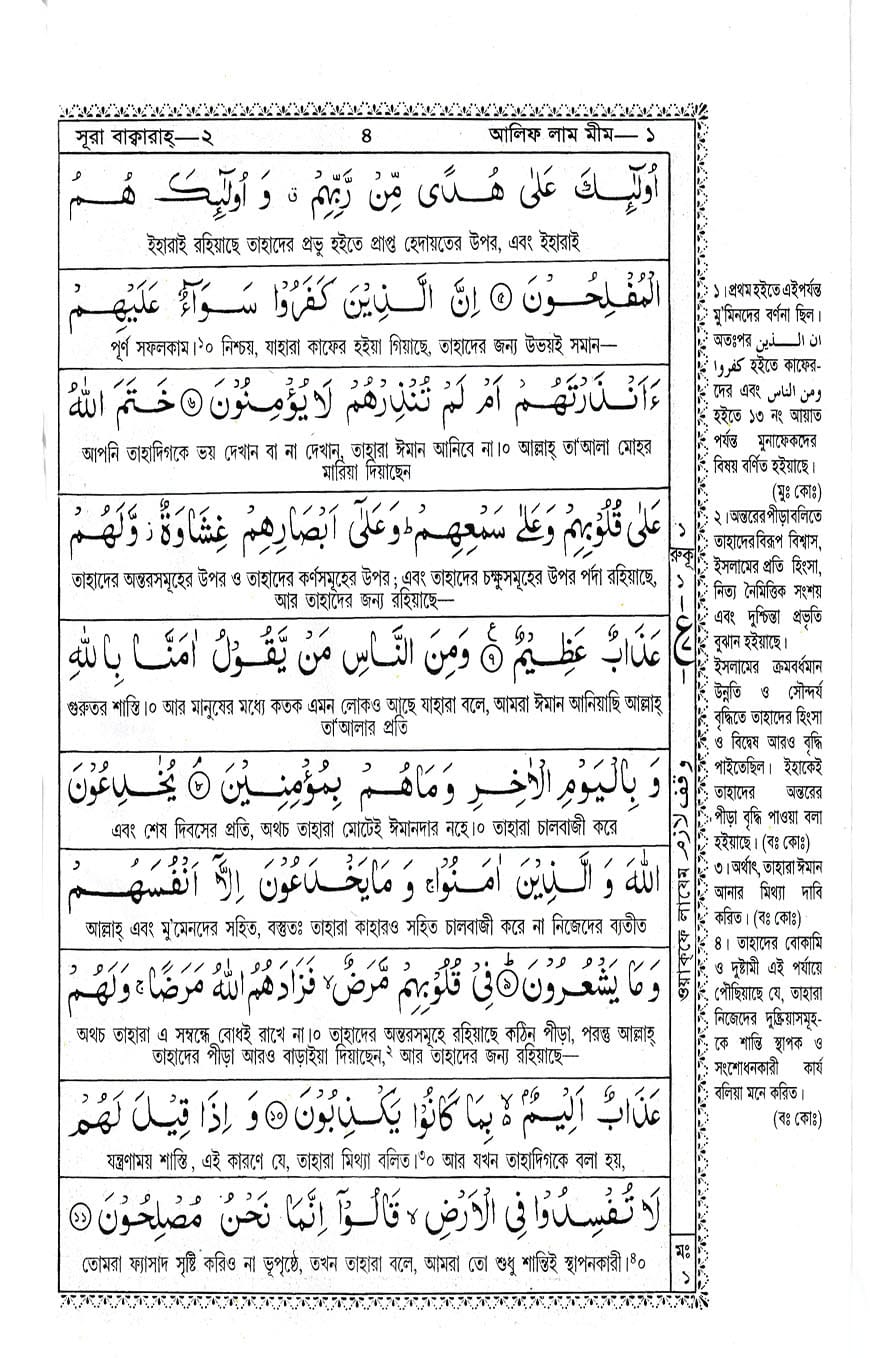 সূরা বাক্বারাহ্—২
৪
আলিফ লাম মীম— ১
اُولٰٓئِكَ عَلٰى هُدًى مِّنْ رَّبِّهِمْ ۙ وَ اُولٰٓئِكَ هُمُ
ইহারাই রহিয়াছে তাহাদের প্রভু হইতে প্রাপ্ত হেদায়তের উপর, এবং ইহারাই
الْمُفْلِحُوْنَ ⓔ اِنَّ الَّذِيْنَ كَفَرُوْا سَوَآءٌ عَلَيْهِمْ
পূর্ণ সফলকাম।¹০ নিশ্চয়, যাহারা কাফের হইয়া গিয়াছে, তাহাদের জন্য উভয়ই সমান—
ءَاَنْذَرْتَهُمْ اَمْ لَمْ تُنْذِرْهُمْ لَا يُؤْمِنُوْنَ ৬ خَتَمَ اللّٰهُ
আপনি তাহাদিগকে ভয় দেখান বা না দেখান, তাহারা ঈমান আনিবে না।০ আল্লাহ্ তা'আলা মোহর
মারিয়া দিয়াছেন
عَلٰى قُلُوْبِهِمْ وَعَلٰى سَمْعِهِمْ ؕ وَعَلٰٓى اَبْصَارِهِمْ غِشَاوَةٌ ز وَّلَهُمْ
তাহাদের অন্তরসমূহের উপর ও তাহাদের কর্ণসমূহের উপর ; এবং তাহাদের চক্ষুসমূহের উপর পর্দা রহিয়াছে,
আর তাহাদের জন্য রহিয়াছে—
عَذَابٌ عَظِيْمٌ ৭ وَمِنَ النَّاسِ مَنْ يَّقُوْلُ اٰمَنَّا بِاللّٰهِ
গুরুতর শাস্তি।০ আর মানুষের মধ্যে কতক এমন লোকও আছে যাহারা বলে, আমরা ঈমান আনিয়াছি আল্লাহ্
তা'আলার প্রতি
وَ بِالْيَوْمِ الْاٰخِرِ وَمَاهُمْ بِمُؤْمِنِيْنَ ৮ يُخٰدِعُوْنَ
এবং শেষ দিবসের প্রতি, অথচ তাহারা মোটেই ঈমানদার নহে।০ তাহারা চালবাজী করে
اللّٰهَ وَ الَّذِيْنَ اٰمَنُوْا ۚ وَ مَا يَخْدَعُوْنَ اِلَّآ اَنْفُسَهُمْ
আল্লাহ্ এবং মু'মেনদের সহিত, বস্তুতঃ তাহারা কাহারও সহিত চালবাজী করে না নিজেদের ব্যতীত
وَ مَا يَشْعُرُوْنَ ৯ فِيْ قُلُوْبِهِمْ مَّرَضٌ ۙ فَزَادَهُمُ اللّٰهُ مَرَضًا ۚ وَلَهُمْ
অথচ তাহারা এ সম্বন্ধে বোধই রাখে না।০ তাহাদের অন্তরসমূহে রহিয়াছে কঠিন পীড়া, পরন্তু আল্লাহ্
তাহাদের পীড়া আরও বাড়াইয়া দিয়াছেন,² আর তাহাদের জন্য রহিয়াছে—
عَذَابٌ اَلِيْمٌ ۙ بِمَا كَانُوْا يَكْذِبُوْنَ ১০ وَ اِذَا قِيْلَ لَهُمْ
যন্ত্রণাময় শাস্তি, এই কারণে যে, তাহারা মিথ্যা বলিত।³০ আর যখন তাহাদিগকে বলা হয়,
لَا تُفْسِدُوْا فِي الْاَرْضِ ۙ قَالُوْٓا اِنَّمَا نَحْنُ مُصْلِحُوْنَ ১১
তোমরা ফ্যাসাদ সৃষ্টি করিও না ভূপৃষ্ঠে, তখন তাহারা বলে, আমরা তো শুধু শান্তিই স্থাপনকারী।⁴০
১
রুকূ
১
ع
وقف لازم
ওয়াক্ফে লাযেম
মঃ
১
১। প্রথম হইতে এইপর্যন্ত
মু'মিনদের বর্ণনা ছিল।
অতঃপর ان الـذين
كفروا হইতে কাফের-
দের এবং ومن الناس
হইতে ১৩ নং আয়াত
পর্যন্ত মুনাফেকদের
বিষয় বর্ণিত হইয়াছে।
(মুঃ কোঃ)
২। অন্তরের পীড়া বলিতে
তাহাদের বিরূপ বিশ্বাস,
ইসলামের প্রতি হিংসা,
নিত্য নৈমিত্তিক সংশয়
এবং দুশ্চিন্তা প্রভৃতি
বুঝান হইয়াছে।
ইসলামের ক্রমবর্ধমান
উন্নতি ও সৌন্দর্য
বৃদ্ধিতে তাহাদের হিংসা
ও বিদ্বেষ আরও বৃদ্ধি
পাইতেছিল। ইহাকেই
তাহাদের অন্তরের
পীড়া বৃদ্ধি পাওয়া বলা
হইয়াছে। (বঃ কোঃ)
৩। অর্থাৎ, তাহারা ঈমান
আনার মিথ্যা দাবি
করিত। (বঃ কোঃ)
৪। তাহাদের বোকামি
ও দুষ্টামী এই পর্যায়ে
পৌছিয়াছে যে, তাহারা
নিজেদের দুষ্ক্রিয়াসমূহ-
কে শান্তি স্থাপক ও
সংশোধনকারী কার্য
বলিয়া মনে করিত।
(বঃ কোঃ)